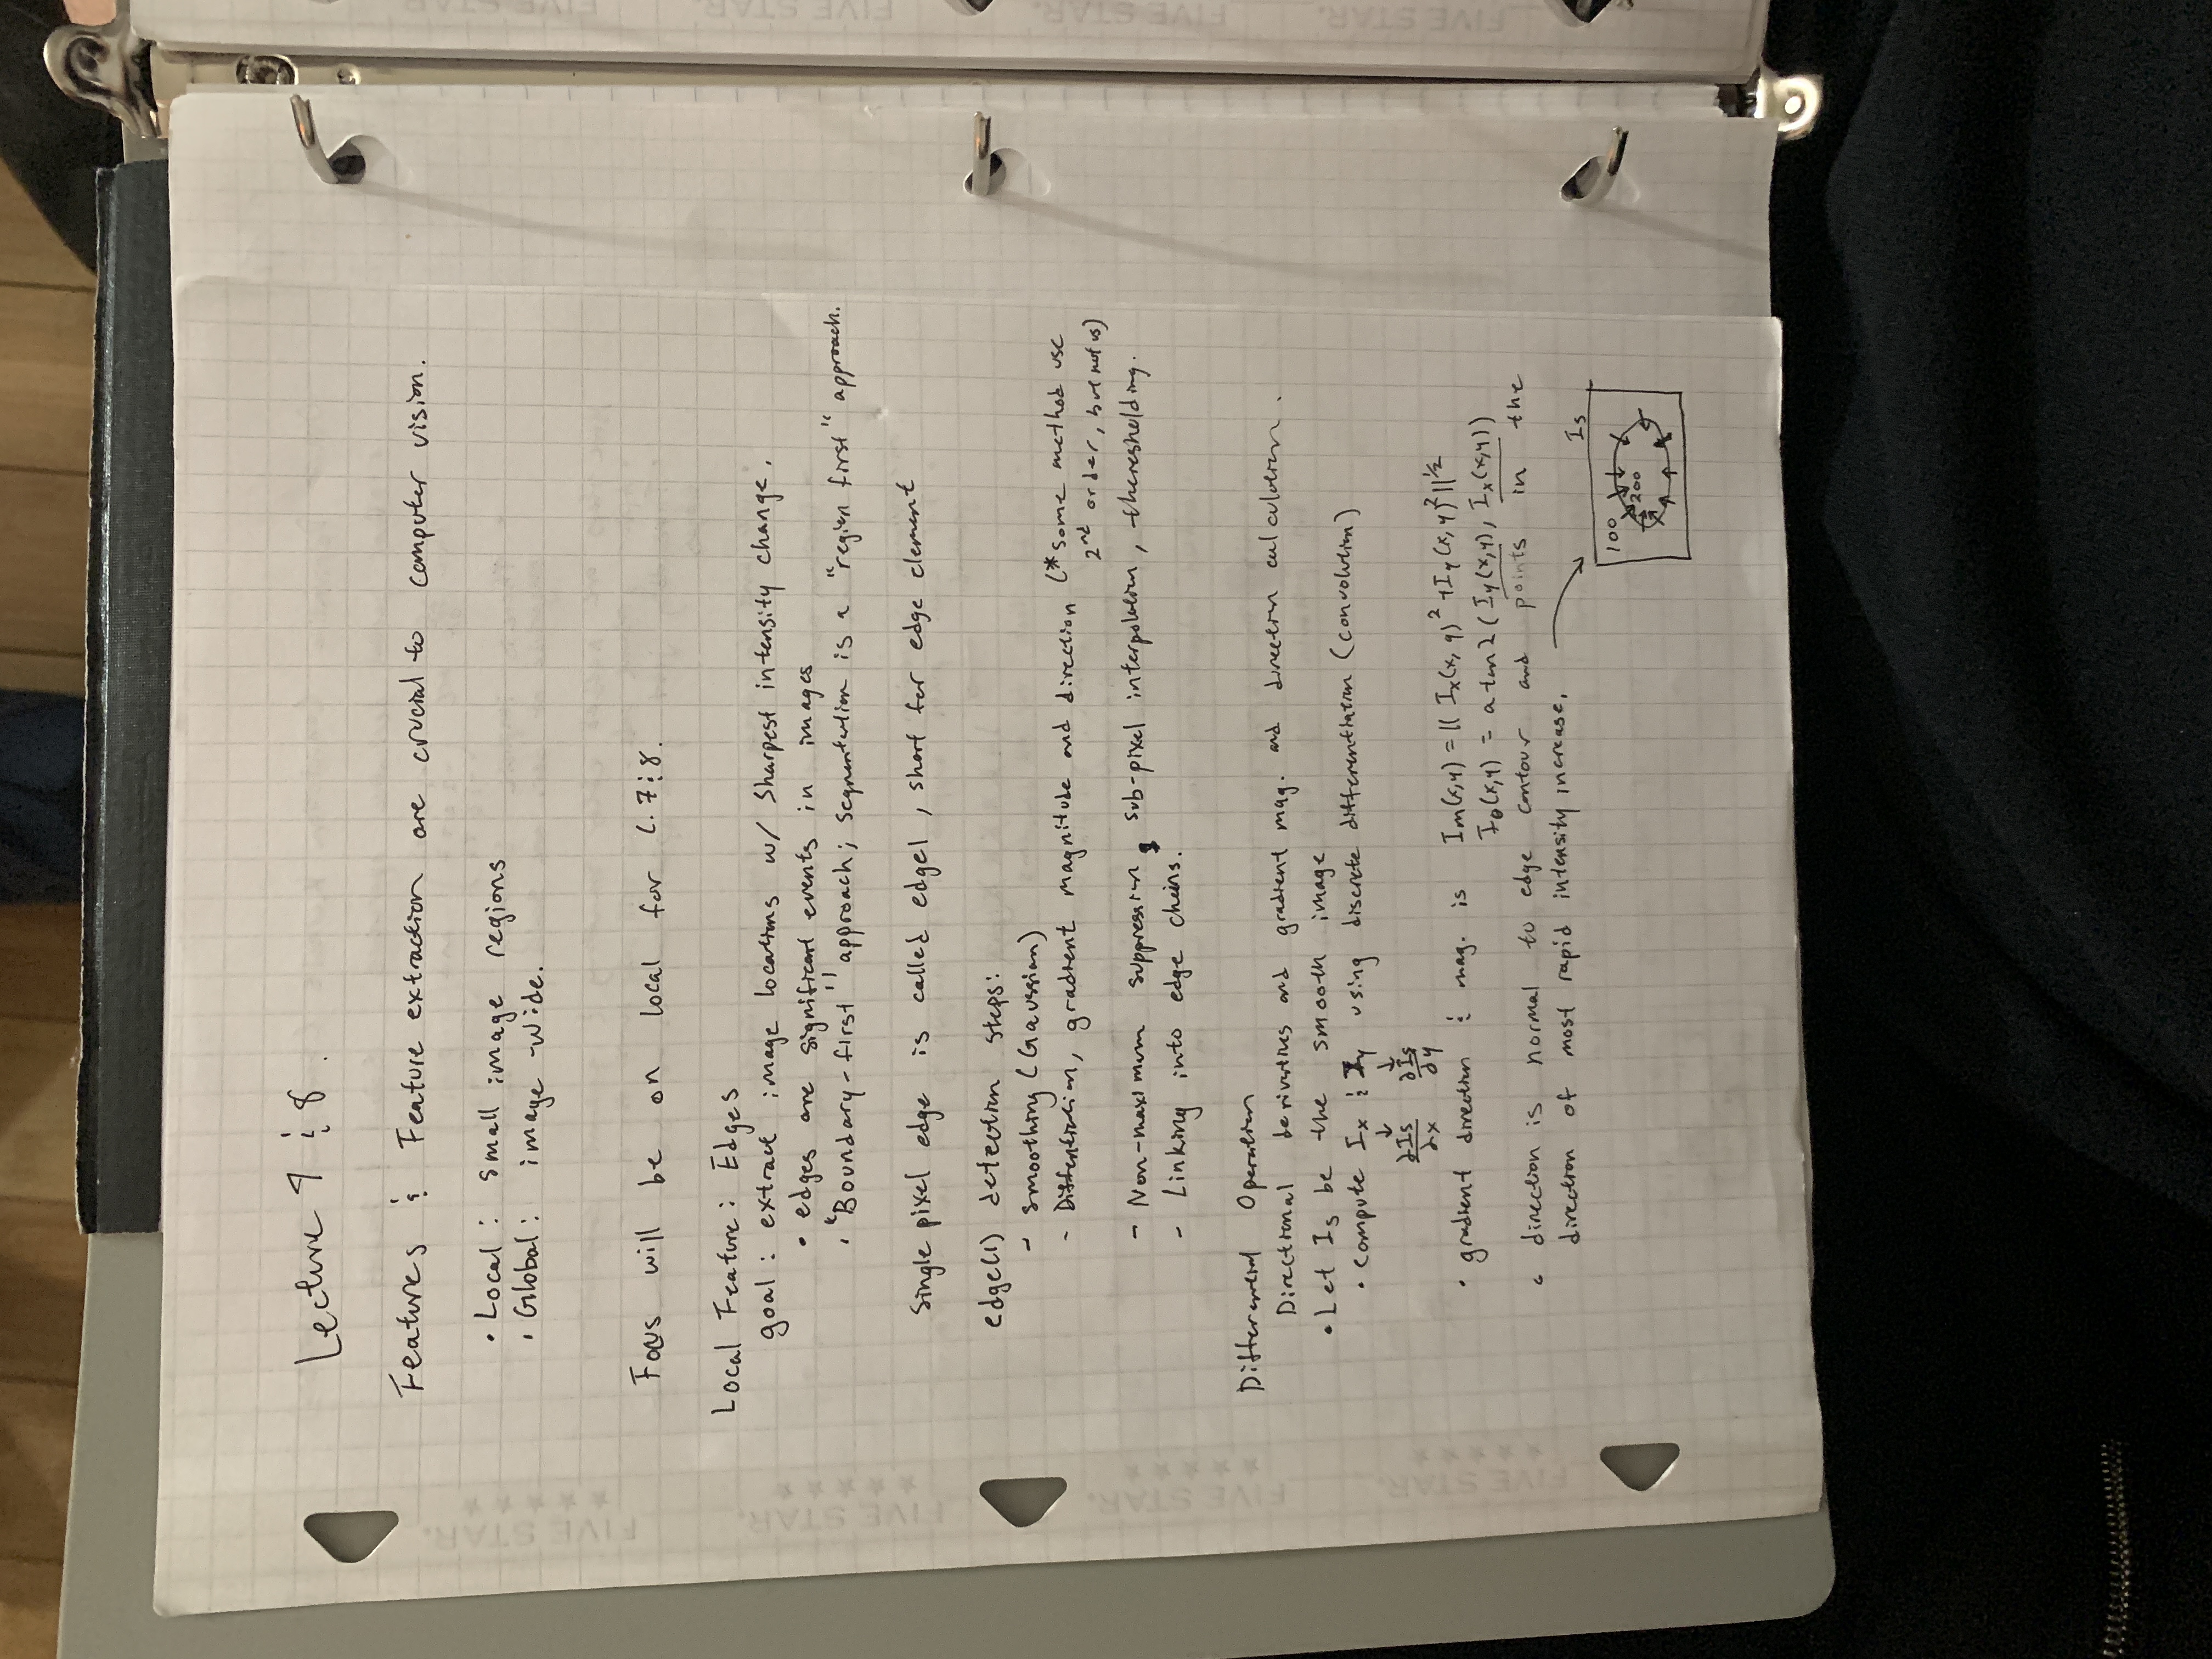 Lecture 7 & 8.
Features & Feature extraction are crucial to computer vision.
• Local: small image regions
• Global: image-wide.
Focus will be on local for L. 7 & 8.
Local Feature: Edges
goal: extract image locations w/ sharpest intensity change.
• edges are significant events in images
• "Boundary-first" approach; segmentation is a "region first" approach.
Single pixel edge is called edgel, short for edge element
edge(l) detection steps:
- smoothing (Gaussian)
- Diffentiation, gradient magnitude and direction (*some method use
2nd order, but not us)
- Non-maximum suppression, sub-pixel interpolation, theresholding.
- Linking into edge chains.
Differential Operation
Directional derivatives and gradient mag. and direction calculation.
• Let Is be the smooth image
• compute Ix & Iy using discrete differentiation (convolution)
↓ ↓
∂Is/∂x ∂Is/∂y
• gradient direction & mag. is Im(x,y) = || Ix(x,y)² + Iy(x,y)² ||^1/2
Iθ(x,y) = atan2(Iy(x,y), Ix(x,y))
• direction is normal to edge contour and points in the
direction of most rapid intensity increase.
Is
100
200
LIVE STAR